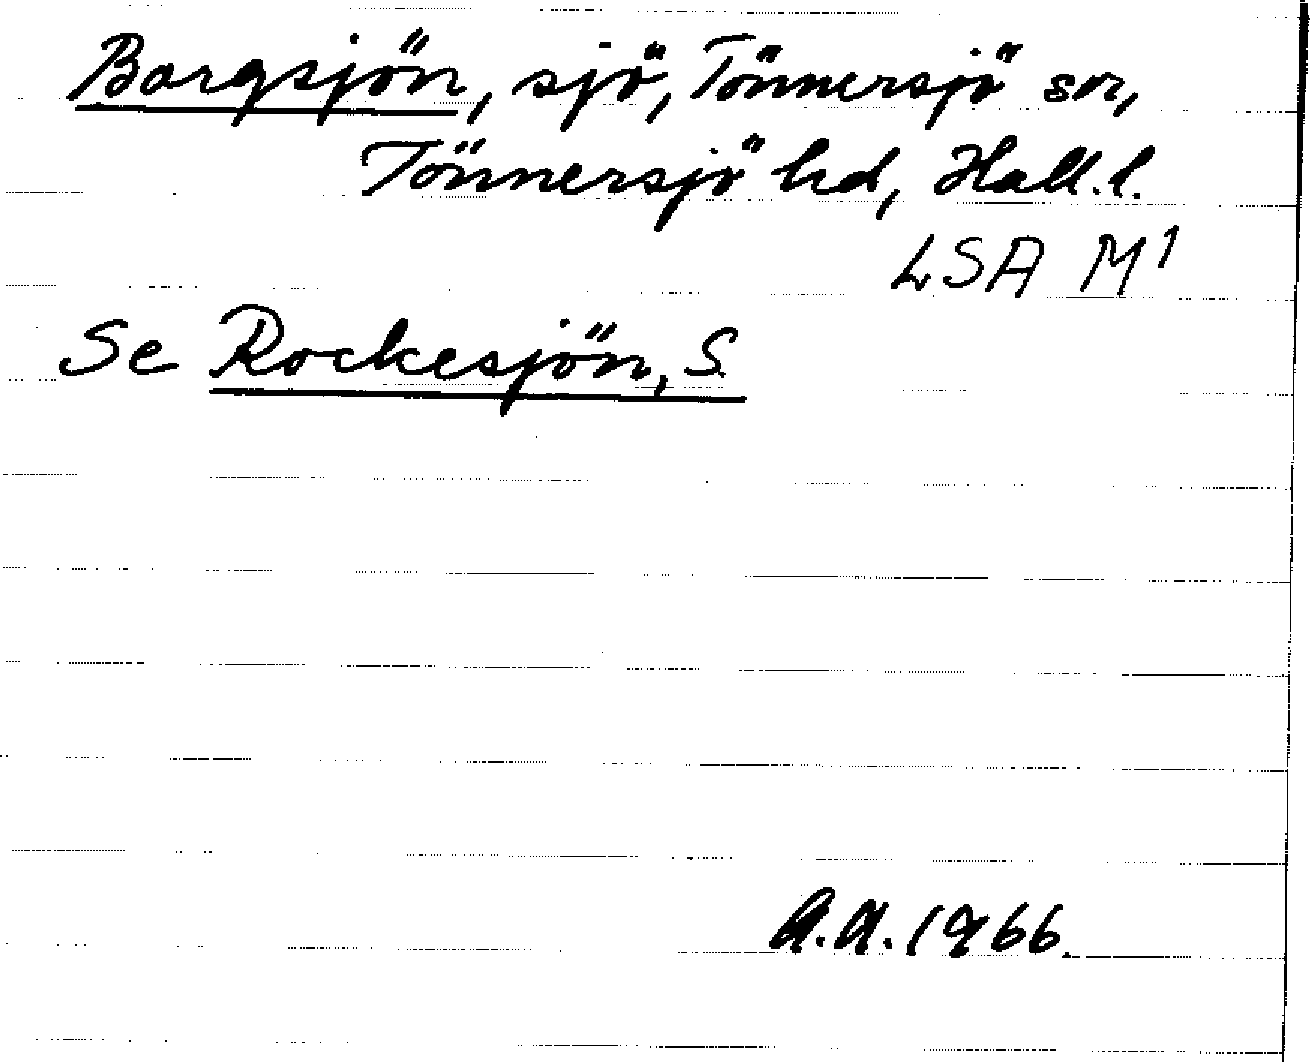 Borgsjön, sjö, Tönnersjö sn,
Tönnersjö hd, Hall. l.
LSA M1
Se Rockesjön, S.
A.A. 1966.